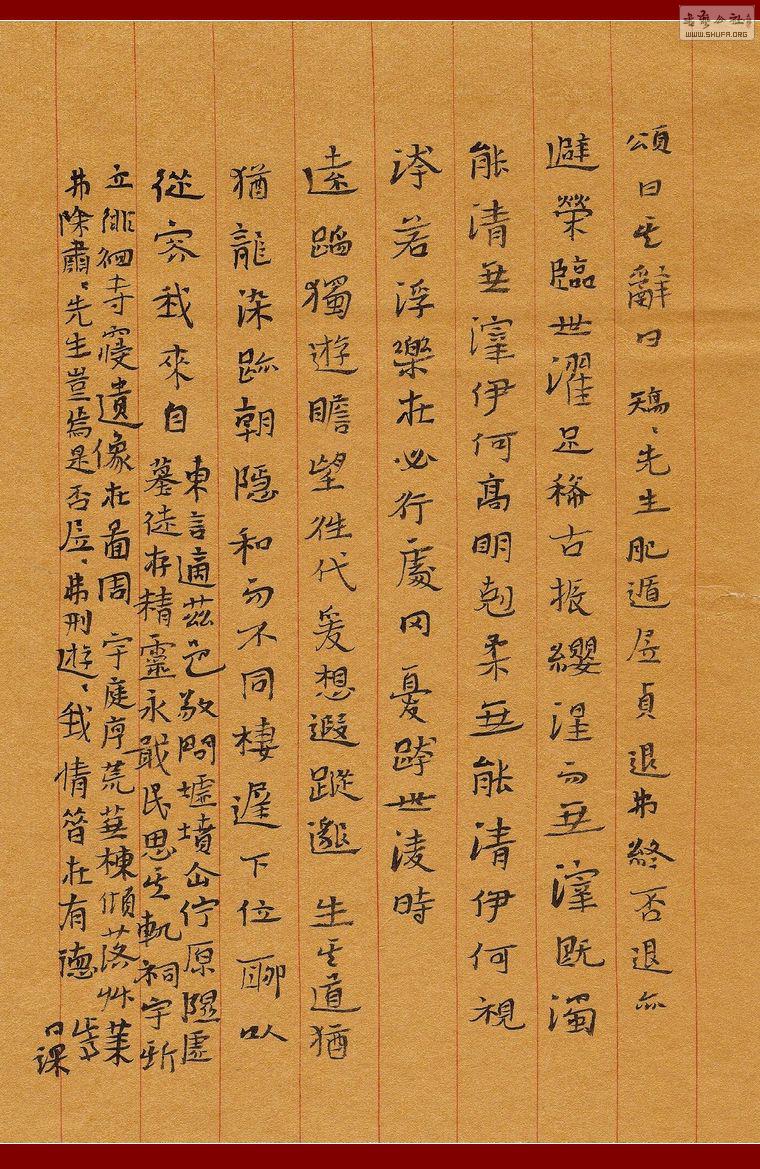 頌曰其辭曰 矯〻先生肥遁居貞退弗終否退亦
避榮臨世濯足稀古振纓涅而無滓既濁
能清無滓伊何高明剋柔無能清伊何視
洿若浮樂在必行處罔憂跨世淩時
遠蹈獨遊瞻望往代爰想遐蹤邈 生其道猶
猶龍染跡朝隱和而不同棲遲下位聊以
從容我來自
東言適茲邑敬問墟墳企佇原隰虛
墓徒存精靈永戢民思其軌祠宇斯
立徘徊寺寢遺像在圖周 宇庭序荒蕪棟傾落草萊
弗除肅〻先生豈焉是否居〻弗刑遊〻我情昔在有德
日課
WWW.SHUFA.ORG